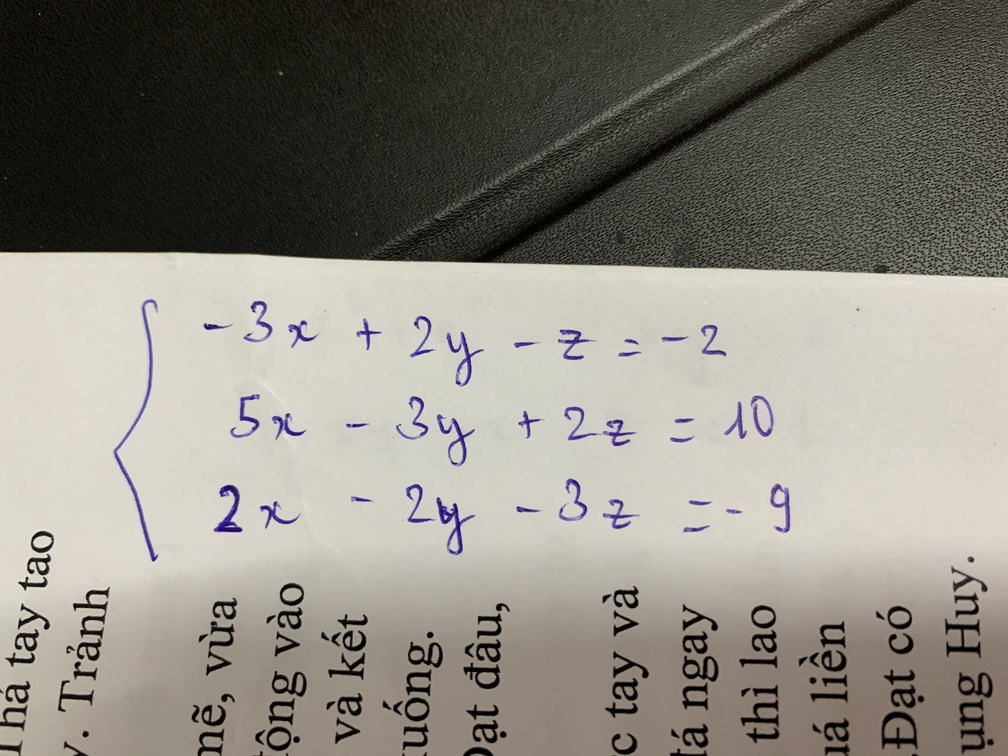 -3x + 2y - z = -2
5x - 3y + 2z = 10
2x - 2y - 3z = -9
tay tao
Trảnh
mẽ, vừa
vào
và kết
xuống.
Đạt đâu,
tay và
ngay
thì lao
liền
Đạt có
Huy.